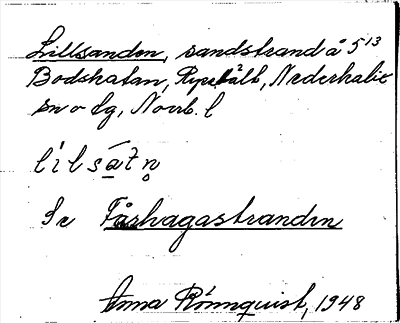 Lillsanden, sandstrand å 5¹³
Bodskatan, Rysshält, Nederkalix
sn o lg, Norrb. l
lilsatn̥
Se Fårhagastranden
Anna Rönnquist, 1948